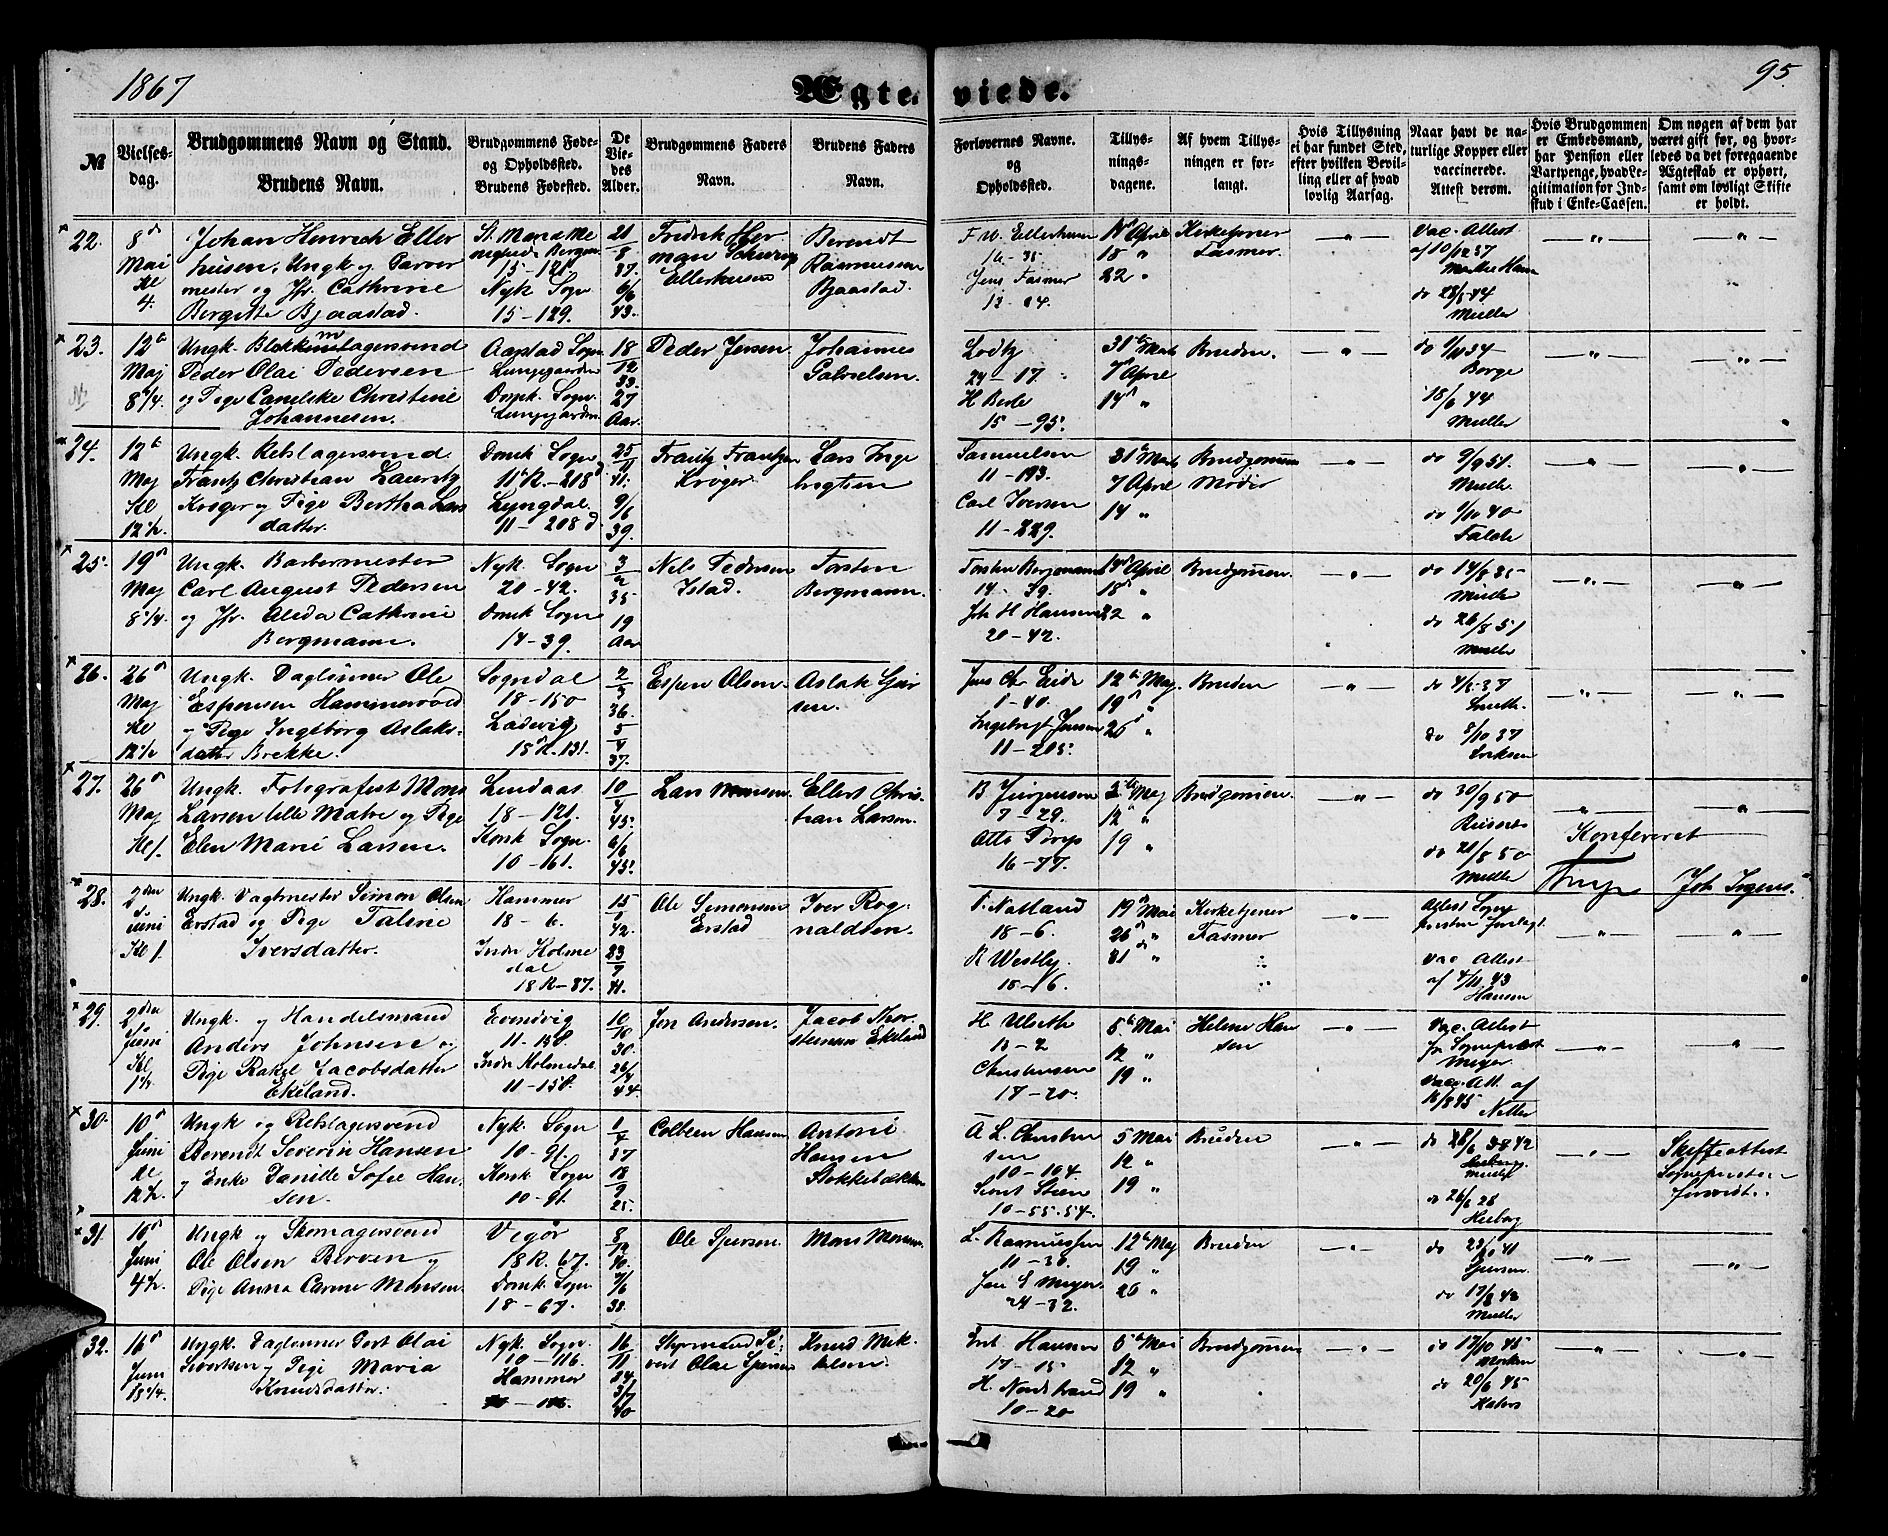 1867
Ægte viede.
95.
№
Vielses-dag.
Brudgommens Navn og Stand.
Brudens Navn.
Brudgommens Føde- og Opholdssted.
Brudens Fødested.
De Viedes Alder.
Brudgommens Faders Navn.
Brudens Faders Navn.
Forlovernes Navne. og Opholdsted.
Tillysningsdagene.
Af hvem Tillysningen er forlangt.
Hvis Tillysning ei har fundet Sted, efter hvilken Bevilling eller af hvad lovlig Aarsag.
Naar havt de naturlige Kopper eller vaccinerede. Attest derom.
Hvis Brudgommen er Embedsmand, har Pension eller Vartpenge, hvad Legitimation for Indskud i Enke-Cassen.
Om nogen af dem har været gift før, og hvorledes da det foregaaende Ægteskab er ophørt, samt om lovligt Skifte er holdt.
22. 8de Mai Kl 4.
Johan Henrich Ellerhusen, Ungk. og
mester og Jfr. Cathrine
Bergitte Bjaastad.
15-121.
Nyk. Sogn
15-129.
21/8 37.
6/6 43.
Fredrik Herman
Ellerhusen
Berendt
Rasmussen
Bjaastad.
F. W. Ellerhusen
Jens Fasmer
April
18 "
22 "
Kirketjener
Fasmer.
Vac. Attest
Müller
23. 12te Maj 8 1/4.
Ungk. Blokkmagersvend
Peder Olai Pedersen
og Pige Canelske Christine
Johannesen.
Aarstad Sogn
Lungegaarden
Domk. Sogn.
Lungegaarden
18/12 33.
27 Aar.
Peder Jensen.
Johannes
Gabrielsen.
24-17.
H Berle
15-95.
31te Marts
7de April
14de "
Bruden.
do 9/11 34
Borge
18/6 44
Müller
24. 12te Maj Kl 12 1/2.
Ungk. Rebslagersvend
Frantz Christian Lauritz
Krøger og Pige Bertha Lars
datter.
Domk Sogn
11 R-218d
Lyngdal.
11-208d.
25/11 41.
9/6 39.
Frantz Frantzen
Krøger
Lars Inge
brigtsen
Samuelsen
11-193.
Carl Iversen
11-229.
31te Marts
7 April
14 "
Brudgommens
Moder
do 9/9 51.
Müller.
do 9/10 40
Falch
25. 19de Maj 8 1/4.
Ungk. Barbermester
Carl August Pedersen
og Jfr. Alida Cathrine
Bergmann.
Nyk. Sogn
20-42.
Domk Sogn
14-39.
3/2 35
19 Aar
Nils Pedersen
Istad.
Torsten
Bergmann.
Torsten Bergmann
14-39.
Joh H Hansen
20-42.
14de April
18de "
22 "
Brudgommen.
do 14/8 35
Müller
do 26/8 51
Müller
26. 26de Maj Kl 12 1/2
Ungk. Daglønner Ole
Espensen Hammervold
og Pige Ingeborg Aslaks-
datter Brekke.
Sogndal
18-150
Ladevig
15 R. 131.
2/3 36.
5/4 37.
Espen Olsen.
Aslak Geir
sen.
Jens Chr Eide
1-40.
Ingebrigt Jensen
11-205.
12te Maj.
19de "
26de "
Bruden
do 4/8 37
Smith.
do 8/10 37
Eriksen
27. 26de Maj Kl 1.
Ungk. Fotografist Mons
Larsen lille Matre og Pige
Elen Marie Larsen.
Lindaas
18-121.
Korsk Sogn.
10-161.
10/4 45.
6/6 45.
Lars Monsen.
Ellert Chris-
tian Larsen.
B Jørgensen
7-29.
Otto
16-77.
5te Maj
12 "
19 "
Brudgommen.
do 30/9 50
do 21/8 50
Müller
Konfereret
Joh Irgens.
28. 2den Juni Kl 1.
Ungk. Vagtmester Simon Olsen
Erstad og Pige Taline
Iversdatter.
Hammer
18-6.
Indre Holme
dal
18 R-87.
15/1 42.
23/7 41.
Ole Simonsen
Erstad
Iver Rog-
naldsen.
T. Natland
18-6.
R Westby.
18-16.
19de Mai
26de "
31 "
Kirketjener
Fasmer
Attest Sogne
præsten forlagt
Vac Attest
af 4/11 43
Hansen
29. 2den Juni Kl 1 1/2.
Ungk. og Handelsmand
Anders Johnsen og
Pige Rakel Jacobsdatter
Ekeland.
Evendvig
11-158.
Indre Holmedal.
11-158.
10/10 30.
26/4 44.
Jon Andersen.
Jacob Thor
stensen Ekeland
H. Ulseth
13-2
Christensen
17-20.
5te Mai
12 "
19 "
Helene Han
sen
Vac. Attest
fr Sognepræst
Meyer
Vac. Att. af
30. 10de Juni Kl 12 1/2.
Ungk og Rebslagersvend
Berendt Severin Hansen
og Enke Danille Sofie Han-
sen.
Nyk. Sogn
10-91.
Korsk Sogn
10-91.
1/4 37
18/9 25.
Colbein Hansen
Antoni
Hansen
Stokkebækken
A L. Christen
sen
10-104.
10-55-54.
5 Mai
12 "
19 "
Bruden
Müller
do 26/6 28
Heiberg
Skifteattest
Sognepræsten
forevist.
31. 10de Juni 4 1/2.
Ungk og Skomagersvend
Ole Olsen Berven og
Pige Anna Carine Monsen.
Vigør
18 R. 67.
Domk. Sogn
18-67.
7/6 38.
Ole Iversen.
Mons Monsen
L. Rasmussen
11-30.
Jens E Meyer.
24-32.
12te Maj
19 "
26 "
Bruden
do 17/8 43
Müller
32. 16de Juni 18 1/4.
Ungk. Daglønner Gert Olai
Sivertsen og Pige Maria
Knudsdatter.
Nyk. Sogn.
10-116.
Hammer
16/11 44.
31/7 40
Styrmand Si-
vert Olai Iversen
Knud Mik-
kelsen.
Hansen
17-15.
H. Nordstrand
10-20
5te Mai
12 "
19 "
Brudgommen
do 17/10 45
Morken
do 20/6 45